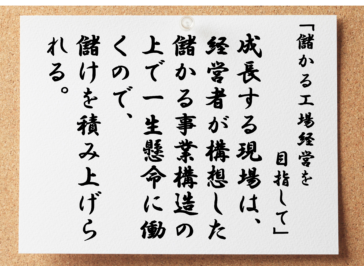 「儲かる工場経営を
目指して」
成長する現場は、
経営者が構想した
儲かる事業構造の
上で一生懸命に働
くので、
儲けを積み上げら
れる。